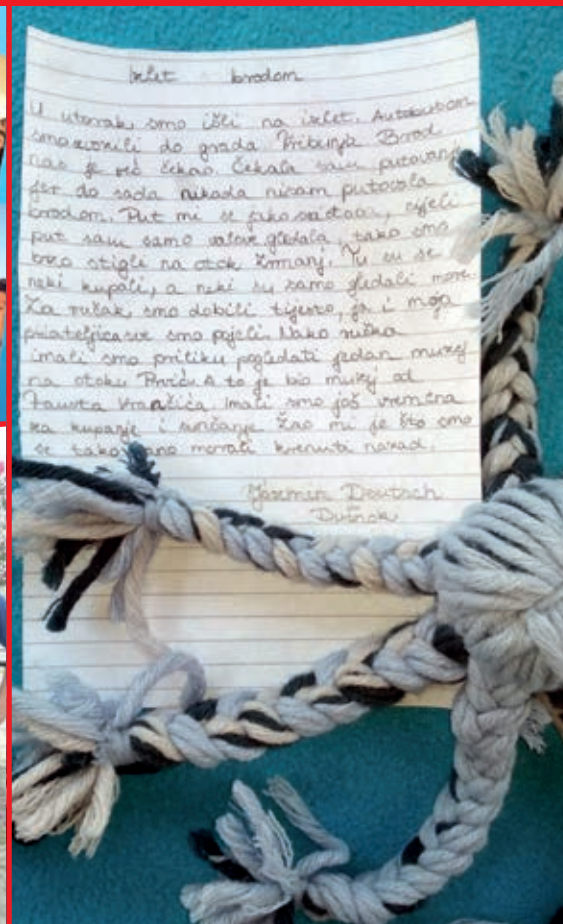 Izlet brodom
U utorak smo išli na izlet. Autobusom
smo vozili do grada Tribunja Brod
nas je već čekao. Čekala sam putovanje
jer do sada nikada nisam putovala
brodom. Put mi se jako svidao, cijeli
put sam samo valove gledala, tako smo
brzo stigli na otok Zmanj. Tu su se
neki kupali, a neki su samo gledali more.
Za ručak smo dobili tijesto, ja i moja
priateljica sve smo pojeli. Nako ručka
imali smo priliku pogledati jedan muzej
na otoku Prviću. A to je bio muzej od
Fausta Vrančića. Imali smo još vremena
za kupanje i sunčanje Žao mi je što smo
se tako rano morali krenuti nazad.
Jasmin Deutsch
Dušnok